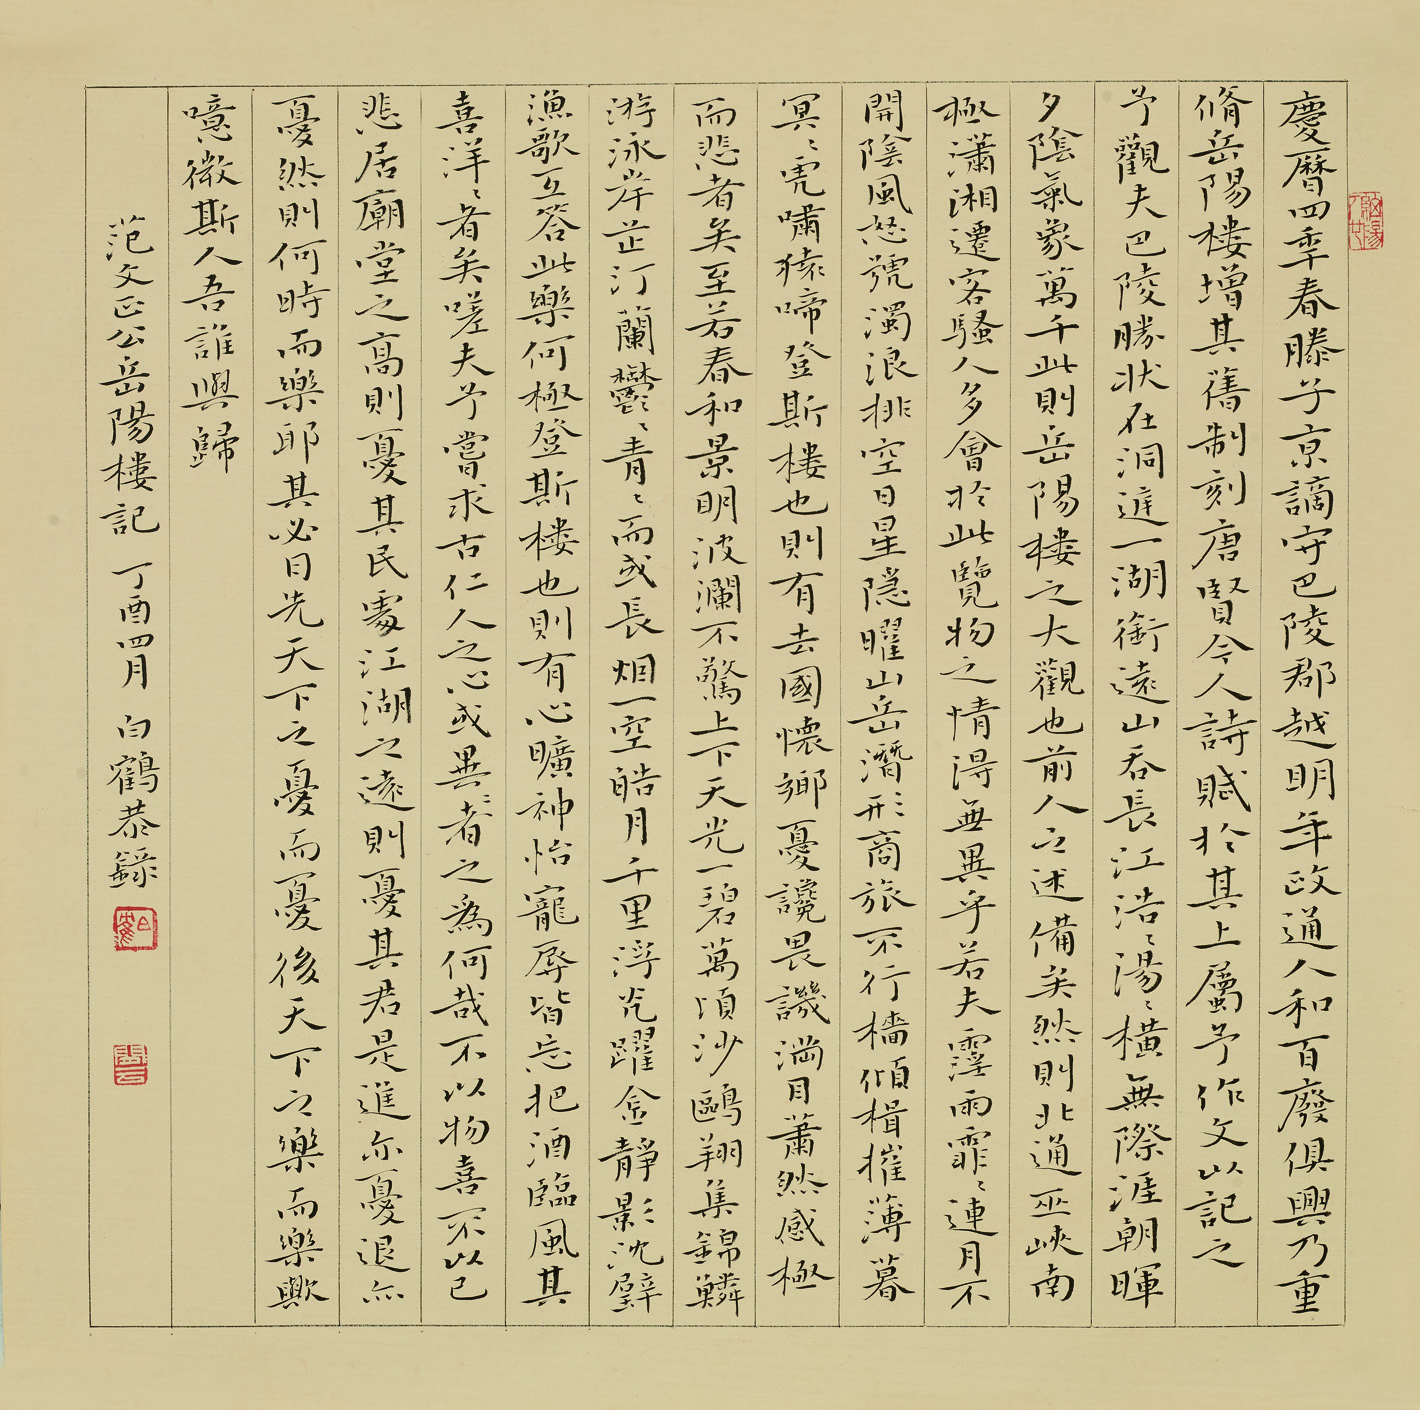 慶曆四季春滕子京謫守巴陵郡越明年政通人和百廢俱興乃重
脩岳陽樓增其舊制刻唐賢今人詩賦於其上屬予作文以記之
予觀夫巴陵勝狀在洞庭一湖銜遠山吞長江浩〻湯〻橫無際涯朝暉
夕陰氣象萬千此則岳陽樓之大觀也前人之述備矣然則北通巫峽南
極瀟湘遷客騷人多會於此覽物之情得無異乎若夫霪雨霏〻連月不
開陰風怒號濁浪排空日星隱曜山岳潛形商旅不行檣傾楫摧薄暮
冥〻虎嘯猿啼登斯樓也則有去國懷鄉憂讒畏譏滿目蕭然感極
而悲者矣至若春和景明波瀾不驚上下天光一碧萬頃沙鷗翔集錦鱗
游泳岸芷汀蘭鬱〻青〻而或長烟一空皓月千里浮光躍金靜影沈璧
漁歌互答此樂何極登斯樓也則有心曠神怡寵辱皆忘把酒臨風其
喜洋〻者矣嗟夫予嘗求古仁人之心或異〻者之為何哉不以物喜不以己
悲居廟堂之高則憂其民處江湖之遠則憂其君是進亦憂退亦
憂然則何時而樂耶其必曰先天下之憂而憂後天下之樂而樂歟
噫微斯人吾誰與歸
范文正公岳陽樓記 丁酉四月 白鶴恭錄